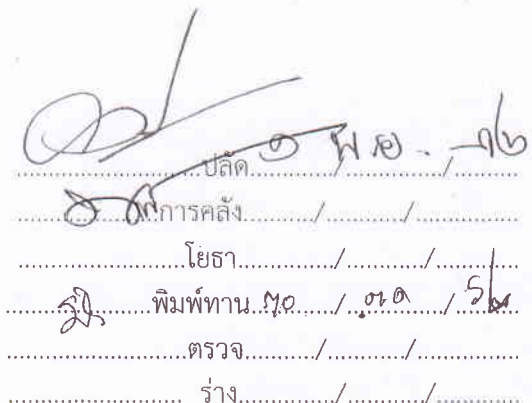 ปลัด ๑ / พ.ย. /
การคลัง / /
โยธา / /
พิมพ์ทาน ๓๐ / ตค /
ตรวจ / /
ร่าง / /